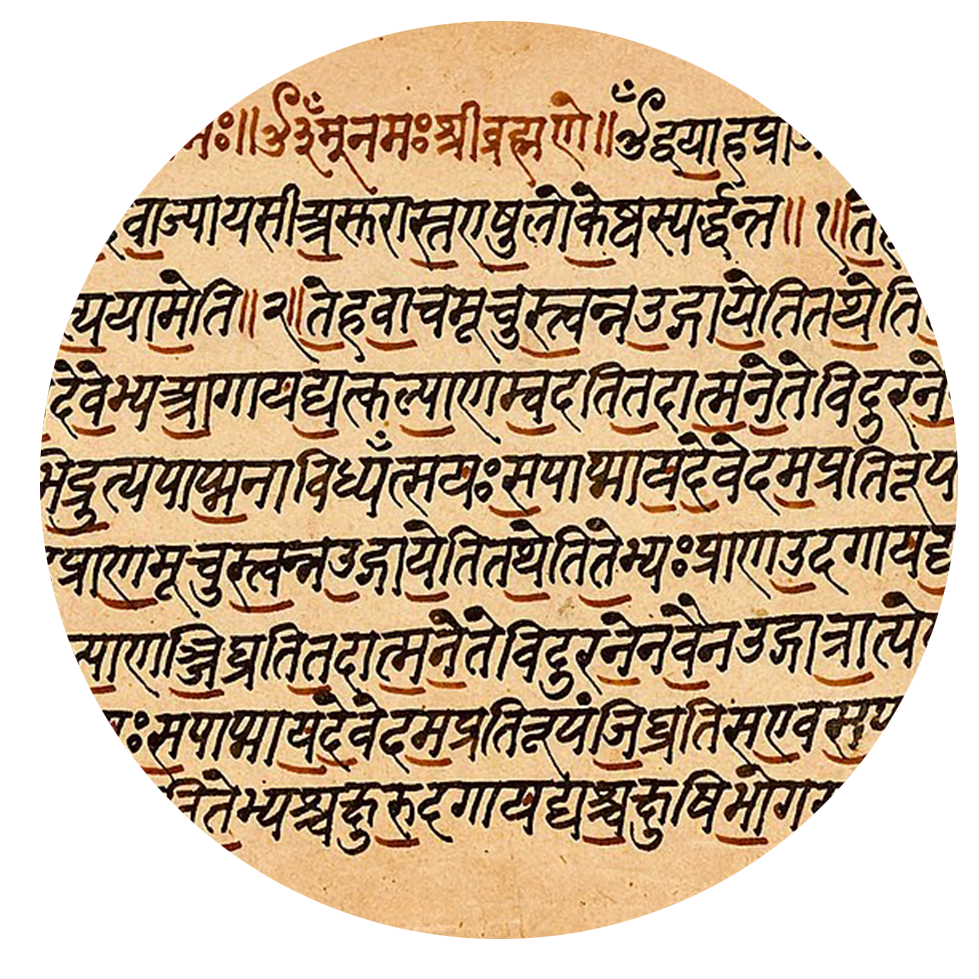 मः॥ॐ३ँमूनमःश्रीब्रह्मणे॥ॐद्वयाहप्रा
वाज्यायसाअसुरास्तएषुलोकेष्वस्पर्द्धन्त॥१॥ते
त्ययामेति॥२॥तेहवाचमूचुस्त्वन्नउद्गायेतितथेति
देवेभ्यआगायद्यत्कल्याणम्वदतितदात्मनेतेविदुरने
भिद्रुत्यपाप्मनाविध्यँत्सयःसपाप्मायदेवेदमप्रतिरूप
प्राणमूचुस्त्वन्नउद्गायेतितथेतितेभ्यःप्राणउदगायद्य
ल्याणञ्जिघ्रतितदात्मनेतेविदुरनेनवैनउद्गात्रात्ये
सपाप्मायदेवेदमप्रतिरूपंजिघ्रतिसएवसपा
तितेभ्यश्चक्षुरुदगायद्यश्चक्षुषिभोग